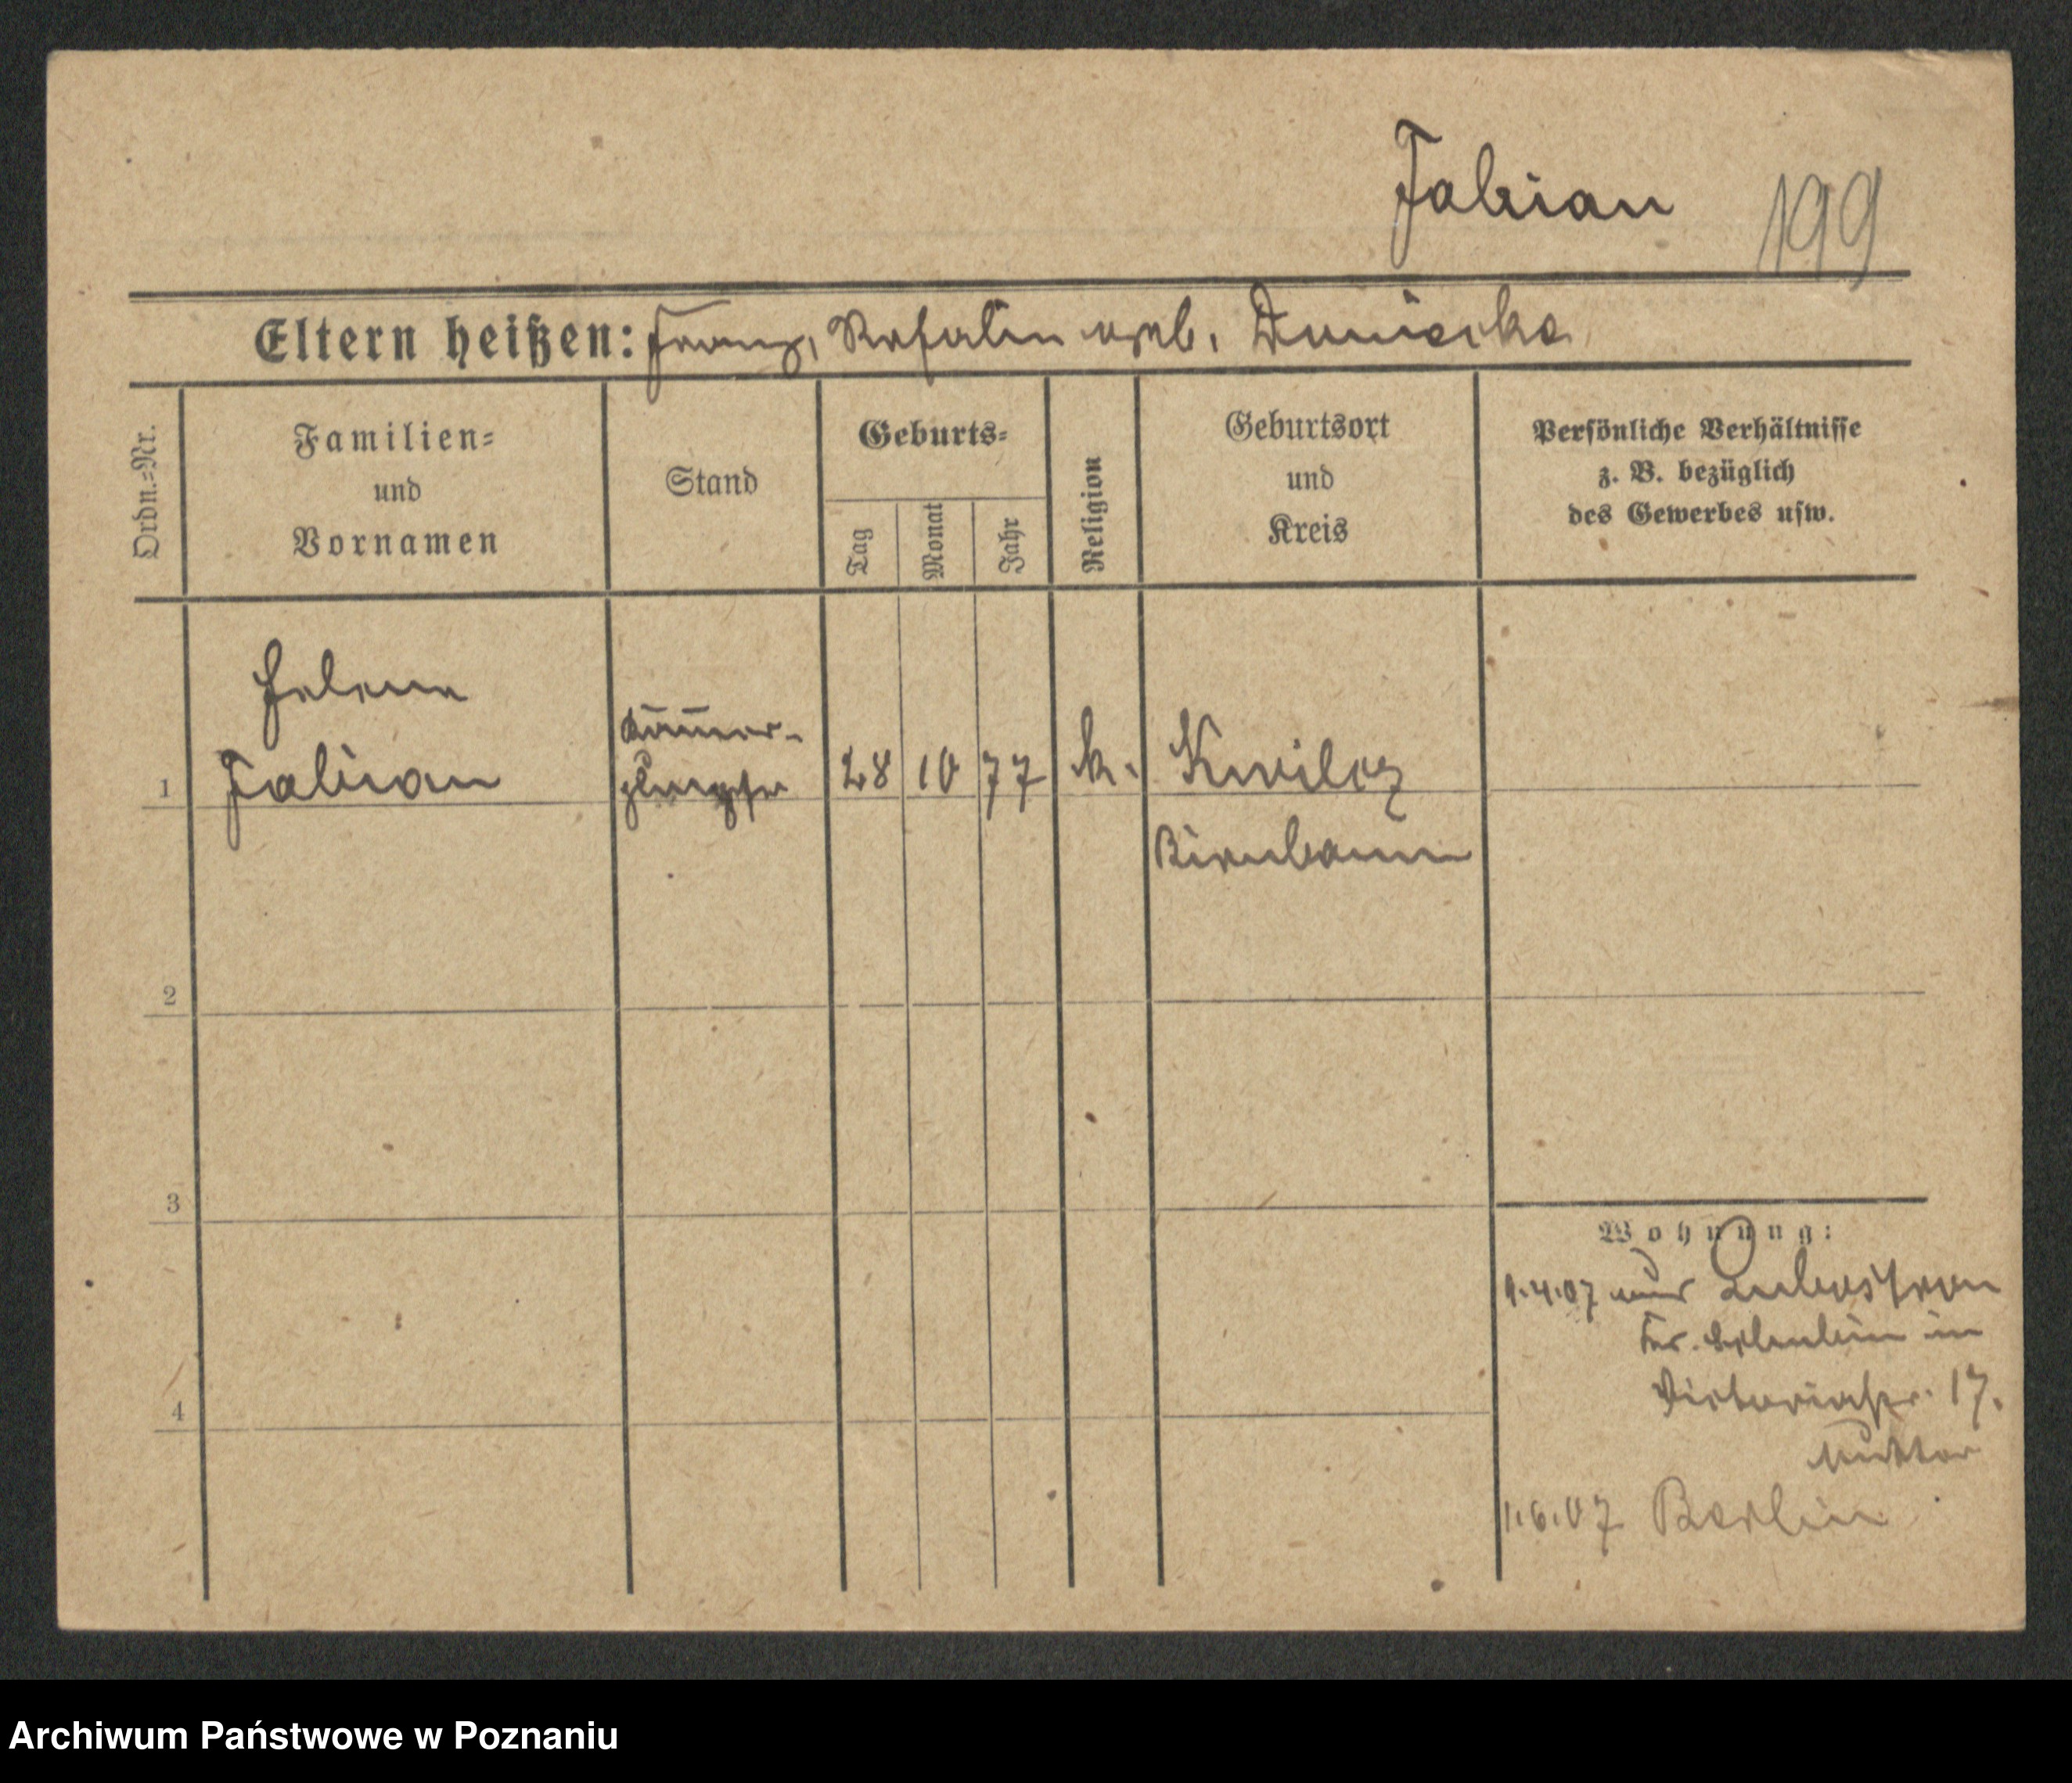 Fabian 199
Eltern heißen: Franz, Rosalie geb. Dunierka
Ordn.-Nr.
Familien-
und
Vornamen
Stand
Geburts-
Tag
Monat
Jahr
Religion
Geburtsort
und
Kreis
Persönliche Verhältnisse
z. B. bezüglich
des Gewerbes usw.
Helena
Kammer-
1 Fabian 28 10 77 k. Kwilcz
Birnbaum
2
3
Wohnung:
9.4.07 aus
in
4
Victoriastr. 17.
1.6.07 Berlin
Archiwum Państwowe w Poznaniu